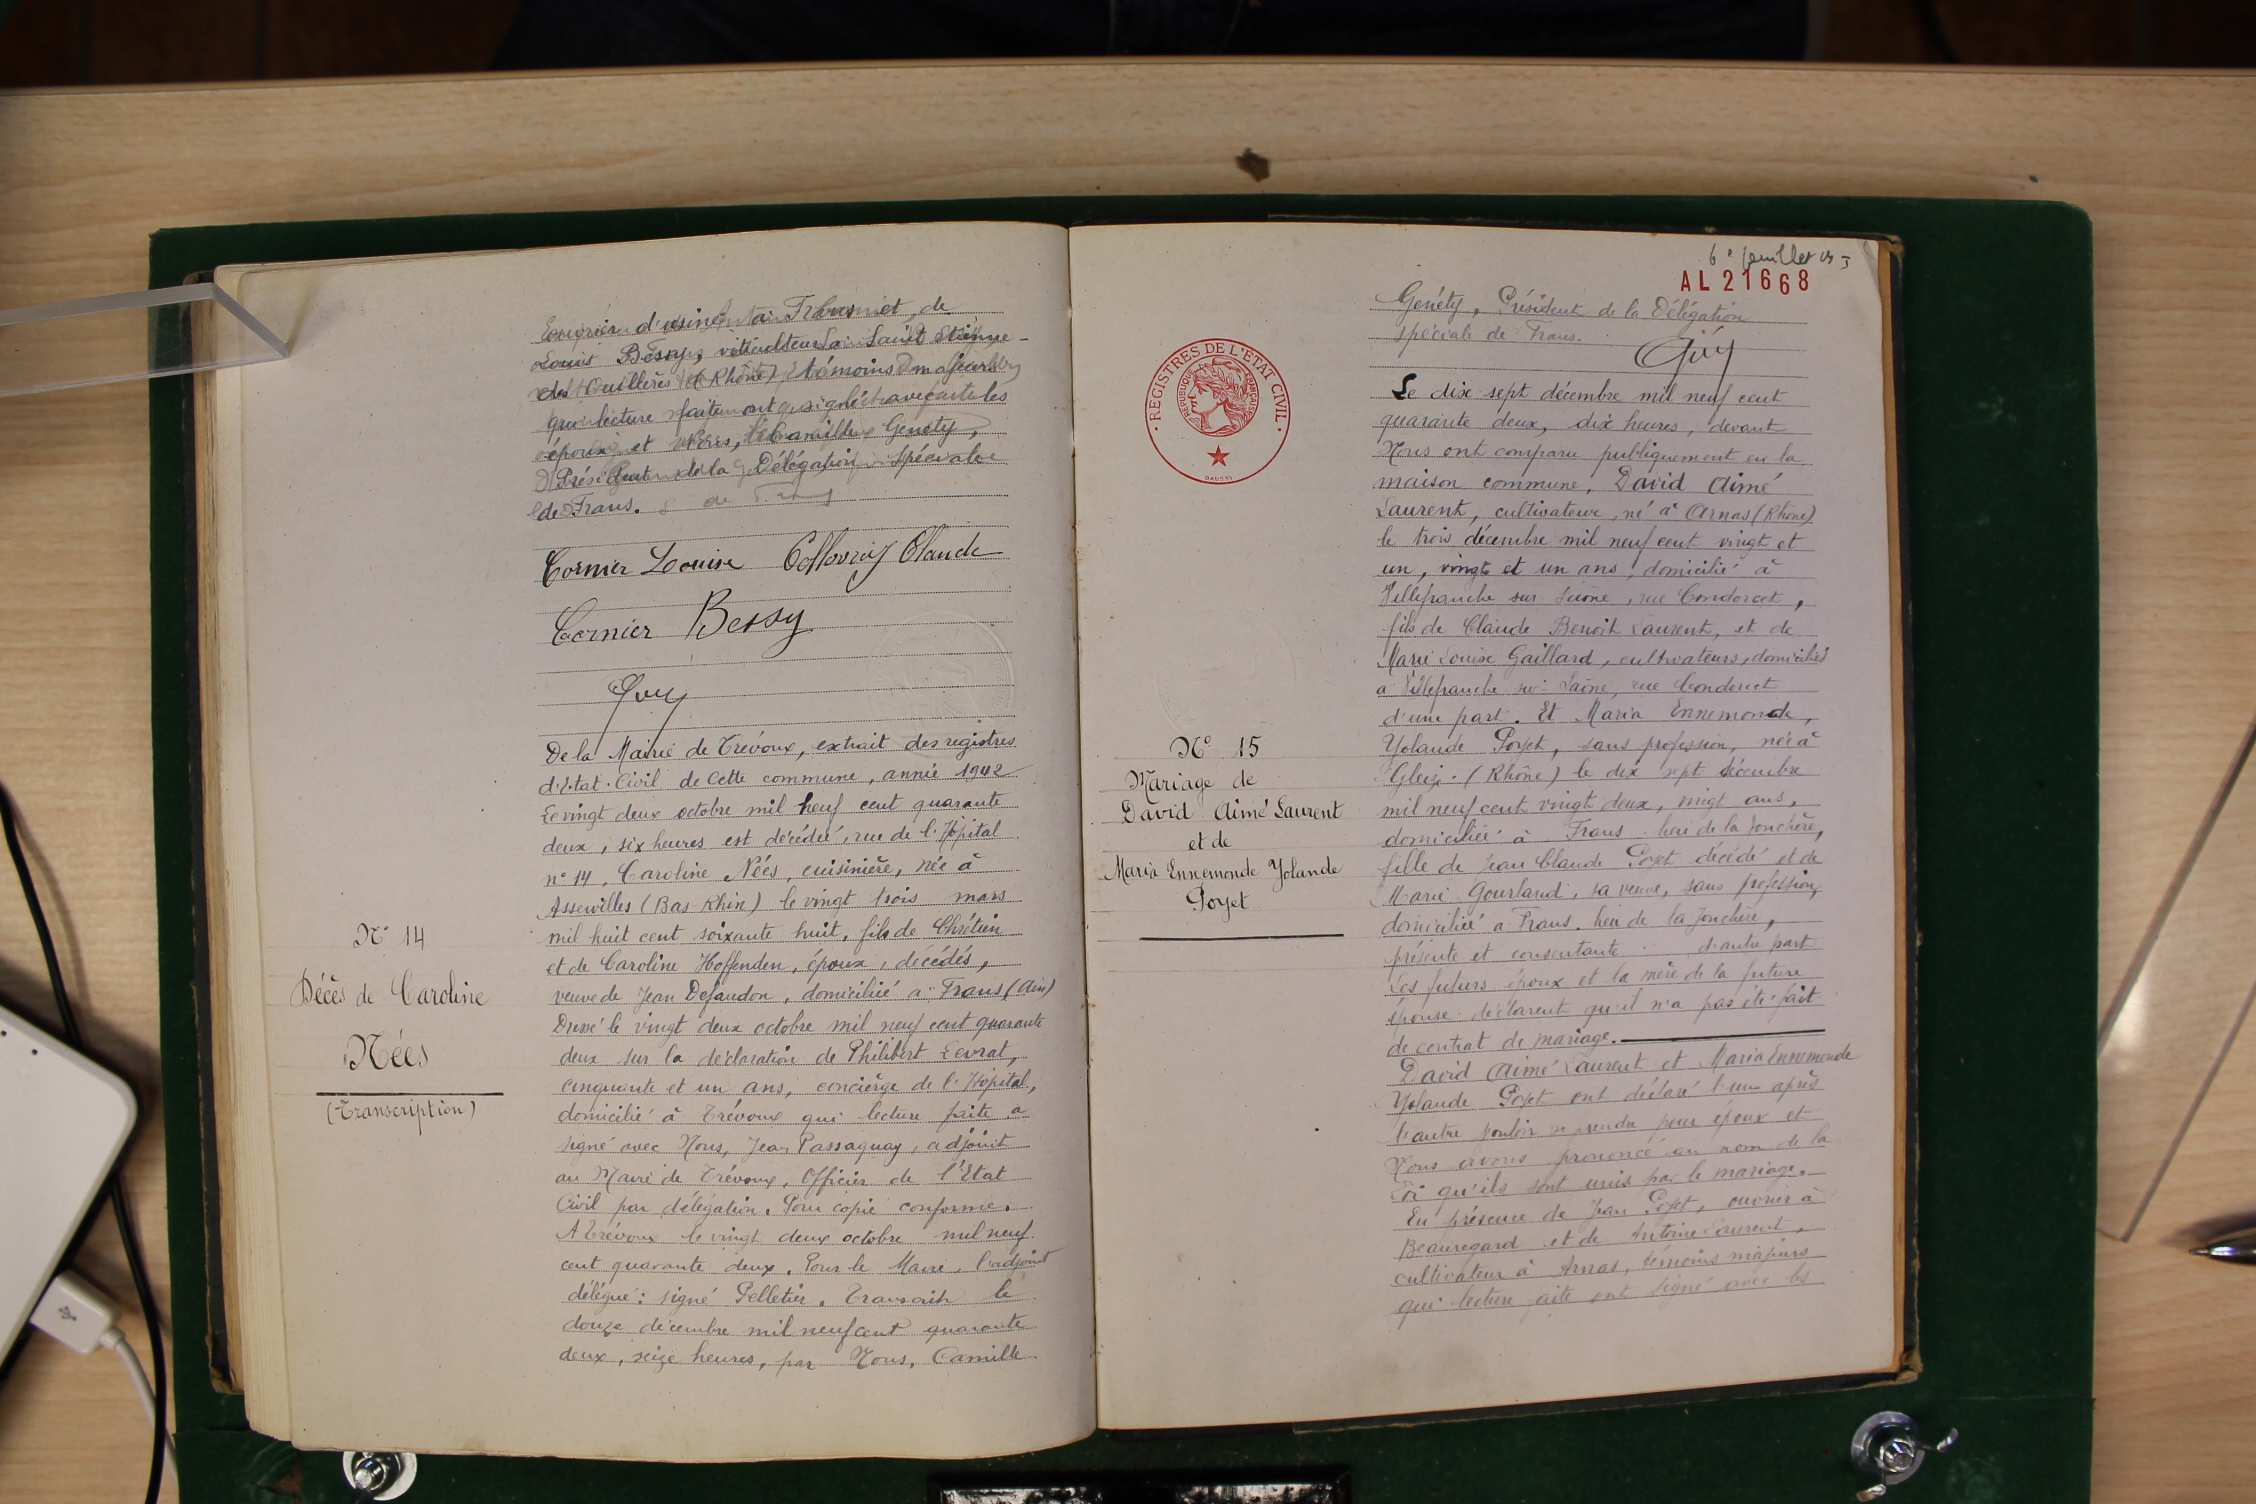 d'usine à et de
Louis Bessy, viticulteur à Saint Etienne-
des Ouillères (Rhône), témoins majeurs
qui lecture faite ont signé avec les
époux et Nous, Camille Genéty,
Président de la Délégation Spéciale
de Frans.
Cornier Louise Collovray Claude
Cornier Bessy
Guy
De la Mairie de Trévoux, extrait des registres
d'Etat-Civil de cette commune, année 1942
Le vingt deux octobre mil neuf cent quarante
deux, six heures est décédée, rue de l'Hôpital
n° 14, Caroline Néés, cuisinière, née à
Assewilles (Bas-Rhin) le vingt trois mars
mil huit cent soixante huit, fils de Chrétien
et de Caroline Hoffenden, époux, décédés,
veuve de Jean Dejaudon, domiciliée à Frans (Ain)
Dressé le vingt deux octobre mil neuf cent quarante
deux sur la déclaration de Philibert Levrat,
cinquante et un ans, concierge de l'Hôpital,
domicilié à Trévoux qui lecture faite a
signé avec Nous, Jean Passaquay, adjoint
au Maire de Trévoux, Officier de l'Etat
Civil par délégation. Pour copie conforme.
A Trévoux le vingt deux octobre mil neuf
cent quarante deux. Pour le Maire, l'adjoint
délégué: signé Pelletier. Transcrit le
douze décembre mil neuf cent quarante
deux, seize heures, par Nous, Camille
N° 14
Décès de Caroline
Néés
(Transcription)
6e feuillet
AL 21668
Genéty, Président de la Délégation
spéciale de Frans.
Guy
REGISTRES DE L'ETAT CIVIL
REPUBLIQUE FRANÇAISE
Le dix-sept décembre mil neuf cent
quarante deux, dix heures, devant
Nous ont comparu publiquement en la
maison commune, David Aimé
Laurent, cultivateur, né à Arnas (Rhône)
le trois décembre mil neuf cent vingt et
un, vingt et un ans, domicilié à
Villefranche sur Saône, rue Condorcet,
fils de Claude Benoit Laurent, et de
Marie Louise Gaillard, cultivateurs, domiciliés
à Villefranche sur Saône, rue Condorcet
d'une part. Et Maria Ennemonde,
Yolande Poyet, sans profession, née à
Gleizé (Rhône) le dix sept décembre
mil neuf cent vingt deux, vingt ans,
domiciliée à Frans lieu de la Jonchère,
fille de Jean Claude Poyet décédé et de
Marie Gourland, sa veuve, sans profession,
domiciliée à Frans. lieu de la Jonchère,
présente et consentante d'autre part
Les futurs époux et la mère de la future
épouse déclarent qu'il n'a pas été fait
de contrat de mariage.
David Aimé Laurent et Maria Ennemonde
Yolande Poyet ont déclaré l'un après
l'autre vouloir se prendre pour époux et
Nous avons prononcé au nom de la
Loi qu'ils sont unis par le mariage.
En présence de Jean Poyet, ouvrier à
Beauregard et de Antoine Laurent,
cultivateur à Arnas, témoins majeurs
qui lecture faite ont signé avec les
N° 15
Mariage de
David Aimé Laurent
et de
Maria Ennemonde Yolande
Poyet